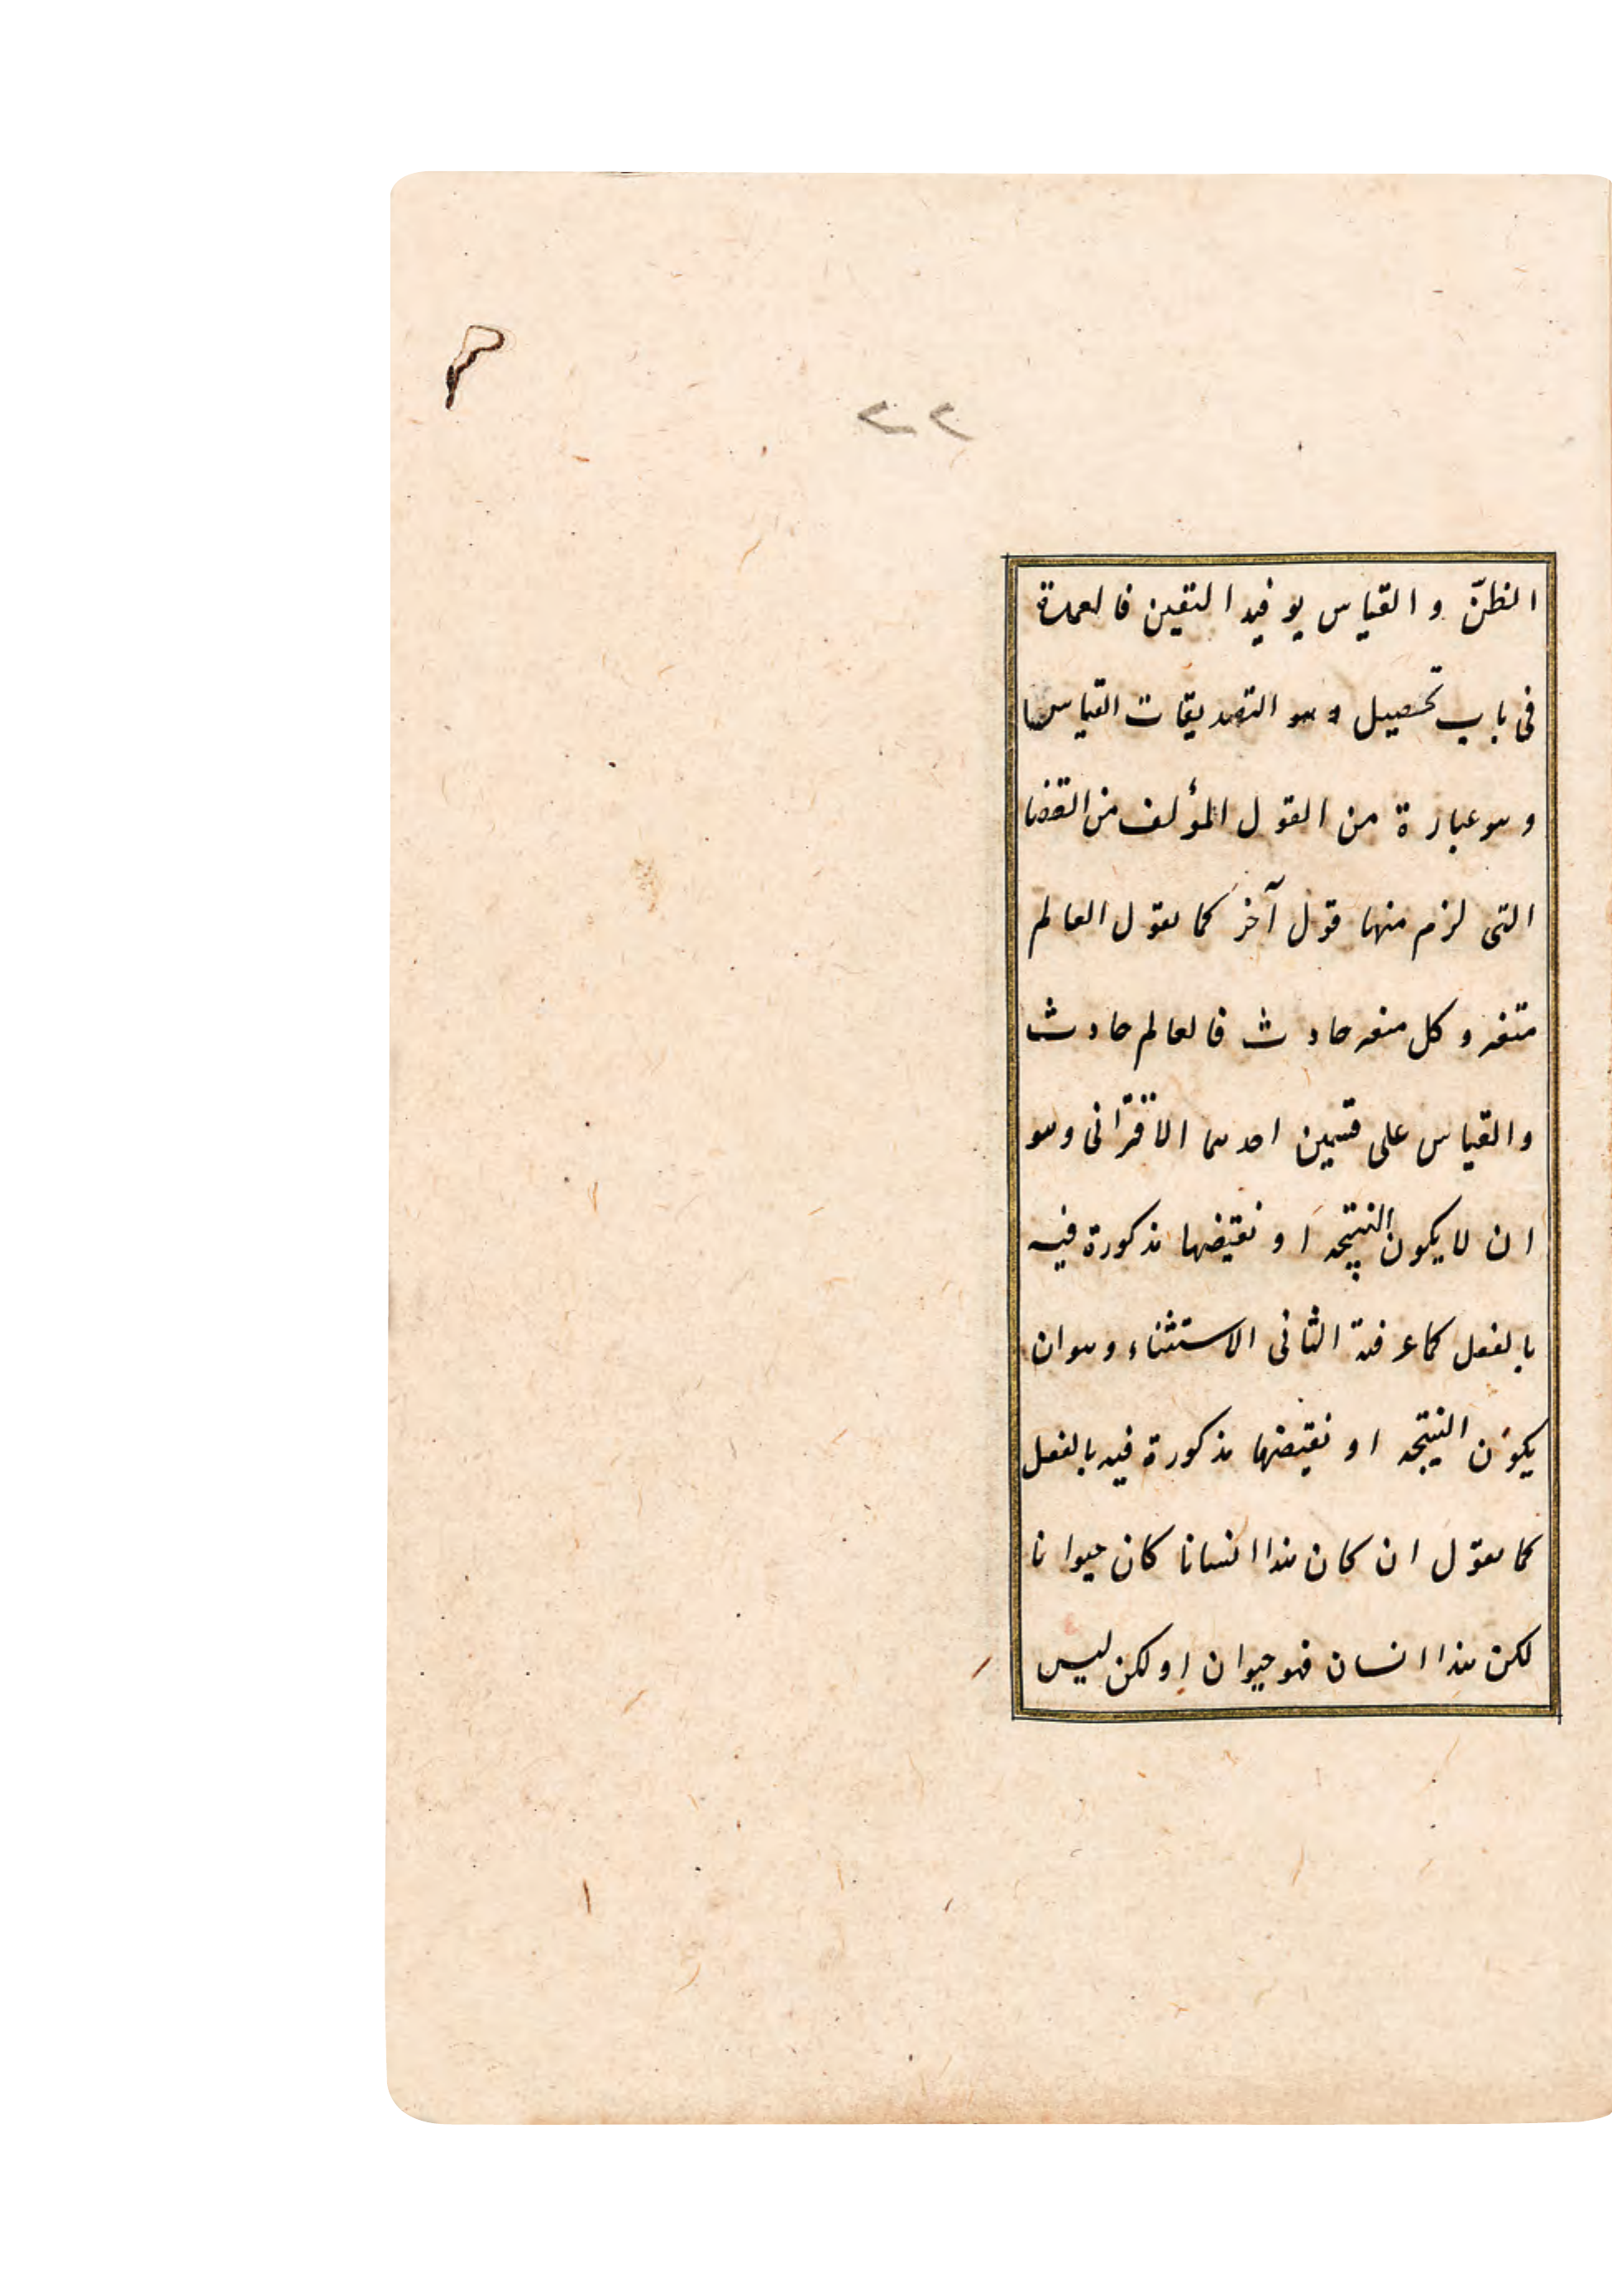 ٢٢
الظنّ والقياس يوفيد اليقين فالعمدة
فى باب تحصيل التصديقات القياس
وهو عبارة من القول المؤلف من القضا
التى لزم منها قول آخر كما يقول العالم
متغير وكل متغير حادث فالعالم حادث
والقياس على قسمين احدهما الاقترانى وهو
ان لا يكون النتيجه او نقيضها مذكورة فيه
بالفعل كما عرفته الثانى الاستثناء وهو ان
يكون النتيجه او نقيضها مذكورة فيه بالفعل
كما يقول ان كان هذا انسانا كان حيوانا
لكن هذا انسان فهو حيوان او لكن ليس